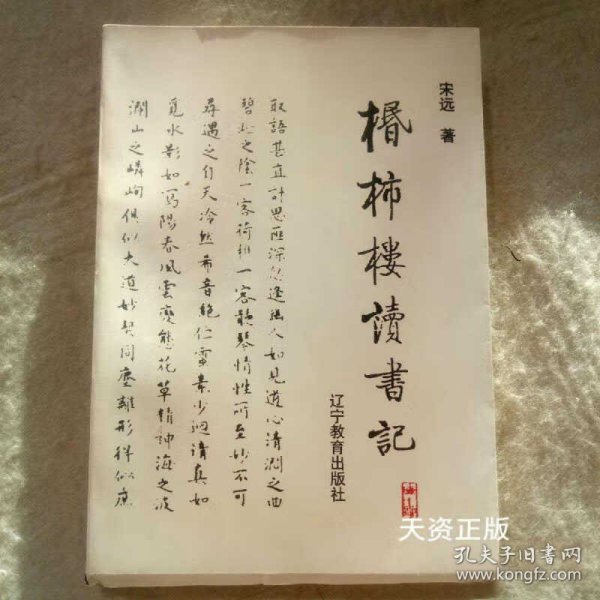 宋远 著
棔柿樓讀書記
辽宁教育出版社
取語甚直計思匪深忽逢幽人如見道心清澗之曲
碧松之陰一客荷樵一客聽琴情性所至妙不自
尋遇之自天泠然希音絕佇靈素少迴清真如
覓水影如寫陽春風雲變態花草精神海之波
瀾山之嶙峋俱似大道妙契同塵離形得似庶
天资正版
孔夫子旧书网
www.kongfz.com